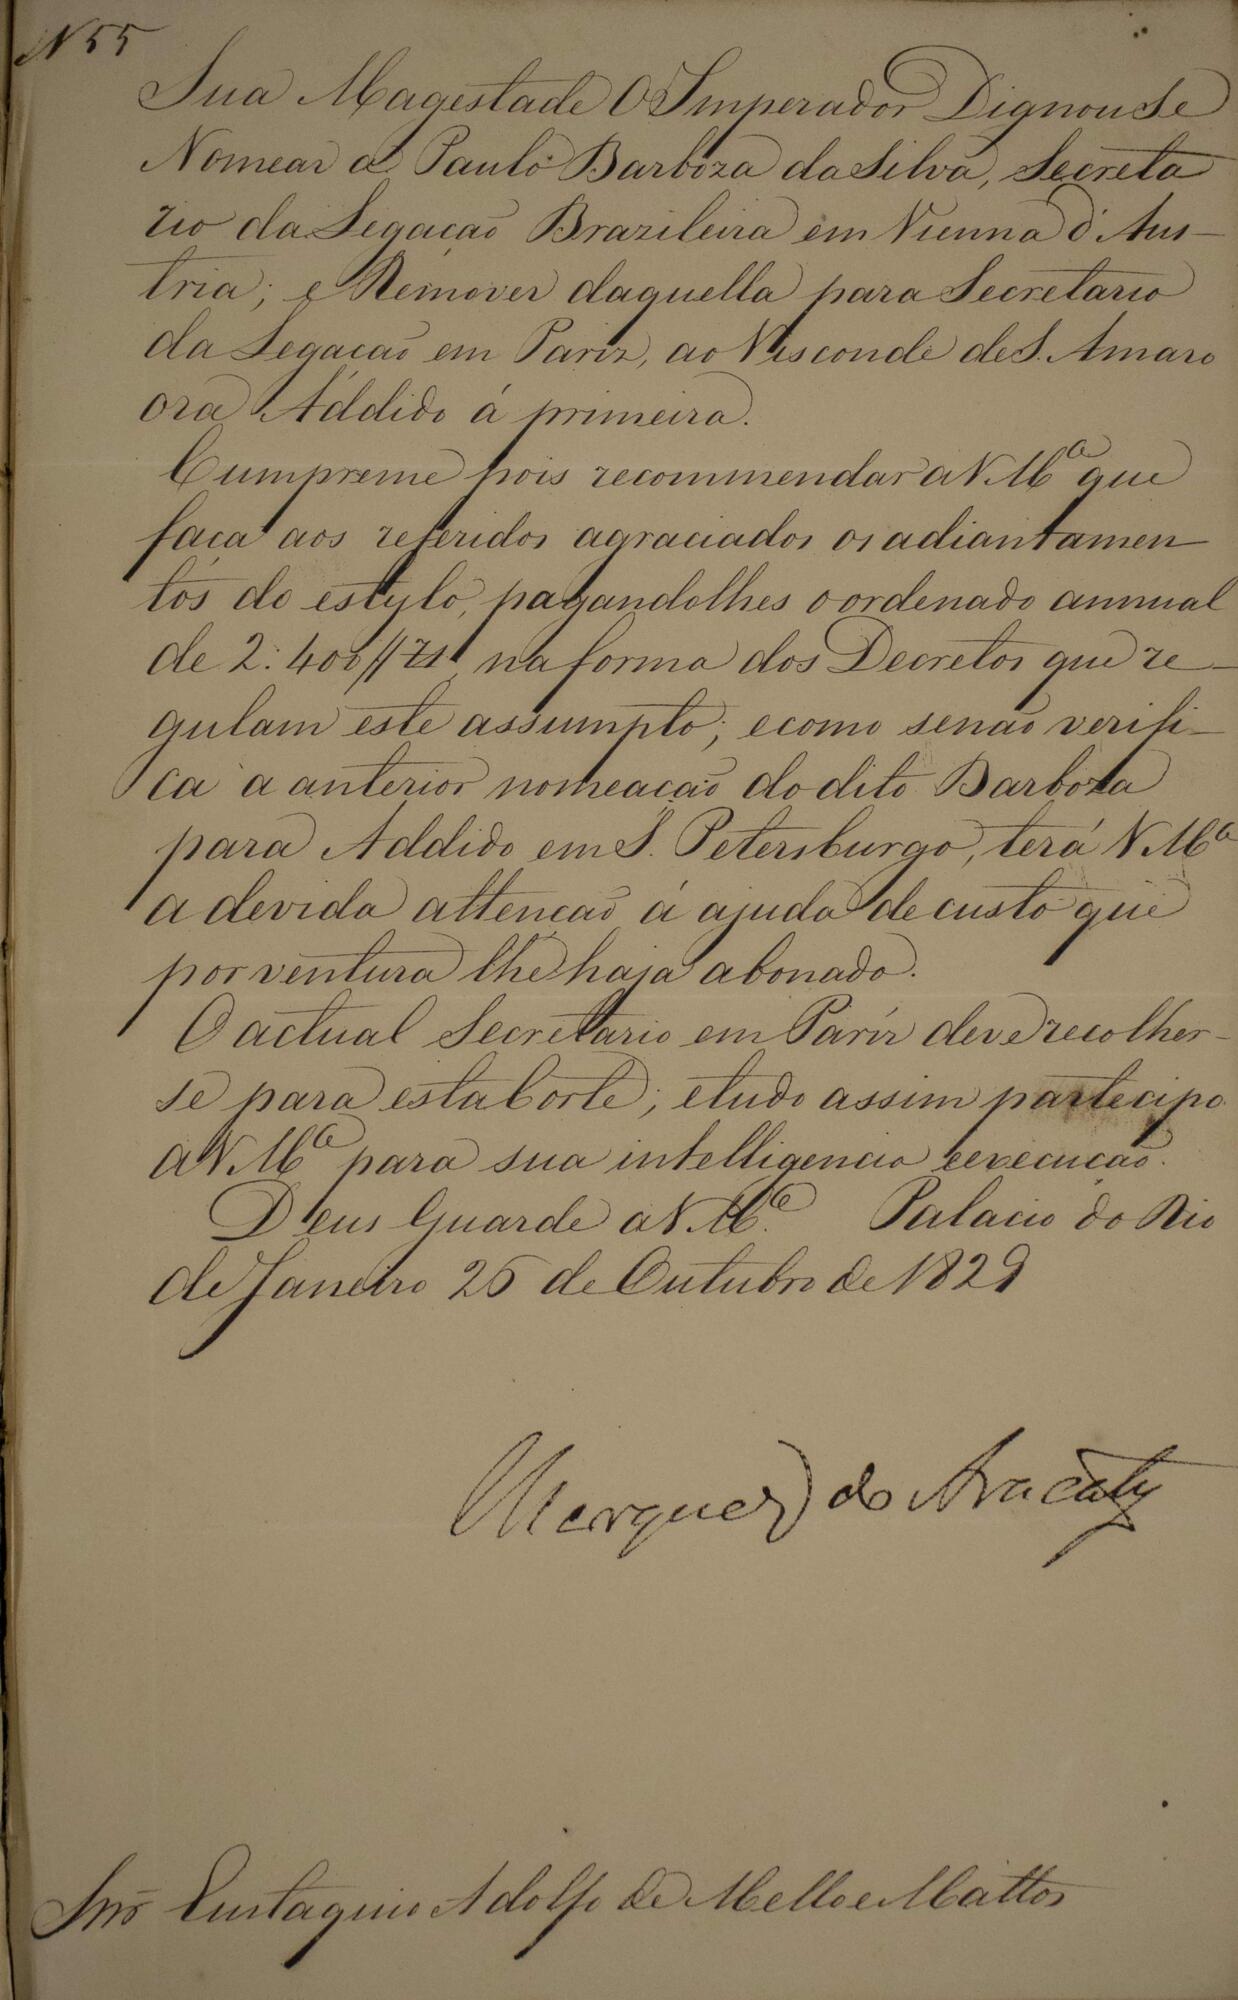 N 55
Sua Magestade O Imperador Dignou Se
Nomear a Paulo Barboza da Silva, Secreta
rio da Legação Brazileira em Vienna d'Aus-
tria; e Remover daquella para Secretario
da Legação em Pariz, ao Visconde de S. Amaro
ora Addido á primeira.
Cumpreme pois recommendar a V. Mce que
faça aos referidos agraciados os adiantamen
tos do estylo, pagandolhes o ordenado annual
de 2:400// rs. na forma dos Decretos que re-
gulam este assumpto; e como senão verifi-
ca a anterior nomeação do dito Barboza
para Addido em S. Petersburgo, terá V. Mce
a devida attenção á ajuda de custo que
por ventura lhe haja abonado.
O actual Secretario em Pariz deve recolher-
se para esta Corte; e tudo assim partecipo
a V. Mce para sua intelligencia e execução.
Deus Guarde a V. Mce. Palacio do Rio
de Janeiro 26 de Outubro de 1829
Marquez do Aracaty
Snr Eustaquio Adolfo de Mello e Mattos